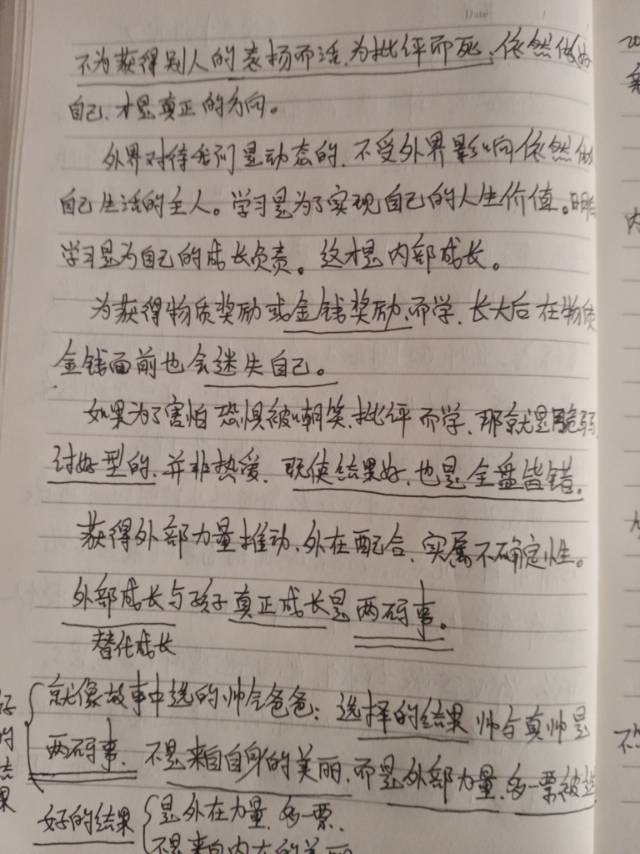 Date
不为获得别人的表扬而活,为批评而死,依然做好
自己,才是真正的方向。
外界对待我们是动态的,不受外界影响依然做
自己生活的主人。学习是为了实现自己的人生价值。
学习是为自己的成长负责。这才是内部成长。
为获得物质奖励或金钱奖励,而学,长大后在物质
金钱面前也会迷失自己。
如果为了害怕恐惧被嘲笑,批评而学,那就是脆弱
讨好型的,并非热爱,既使结果好,也是全盘皆错。
获得外部力量推动,外在配合,实属不确定性。
外部成长与孩子真正成长是两码事。
替代成长
就像故事中选的帅气爸爸:选择的结果帅与真帅是
两码事,不是来自自身的美丽,而是外部力量,多一票被选
好的结果
是外在力量,多一票,
不是来自内在的美丽